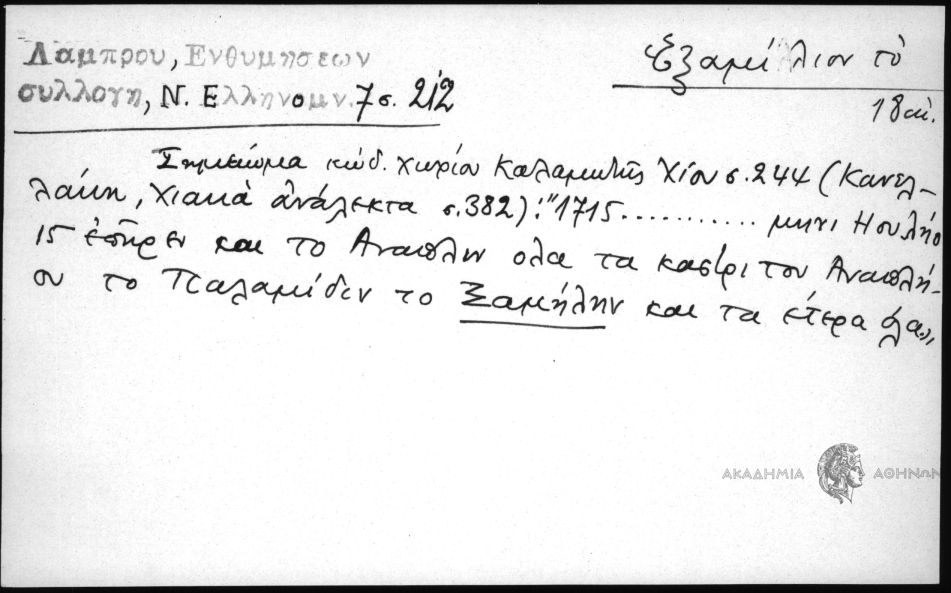 Λαμπρου, Ενθυμησεων
συλλογη, Ν. Ελληνομν. 7 σ. 212
Ἑξαμίλιον τὸ
18 αἰ.
Σημείωμα κώδ. χωρίου Καλαμωτῆς Χίου σ. 244 (Κανελ-
λάκη, Χιακὰ ἀνάλεκτα σ. 382): "1715............ μηνι Ηουλήο
15 ἐπῆρεν και το Αναπλιν ολα τα κασίρι του Αναπλή-
ου το Παλαμίδιν το Ξαμήλην και τα έτερα όλα„
ΑΚΑΔΗΜΙΑ ΑΘΗΝΩΝ